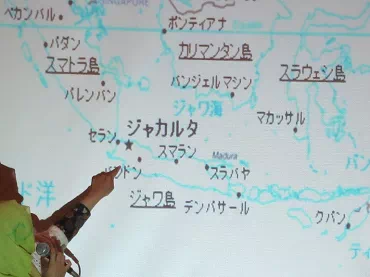 SINGAPORE
ペカンバル
ポンティアナ
パダン
カリマンタン島
スマトラ島
スラウェシ島
バンジェルマシン
パレンバン
ジャワ海
マカッサル
セラン
ジャカルタ
スマラン
Madura
スラバヤ
バンドン
ジャワ島
デンパサール
ド洋
クパン
バン
ティ